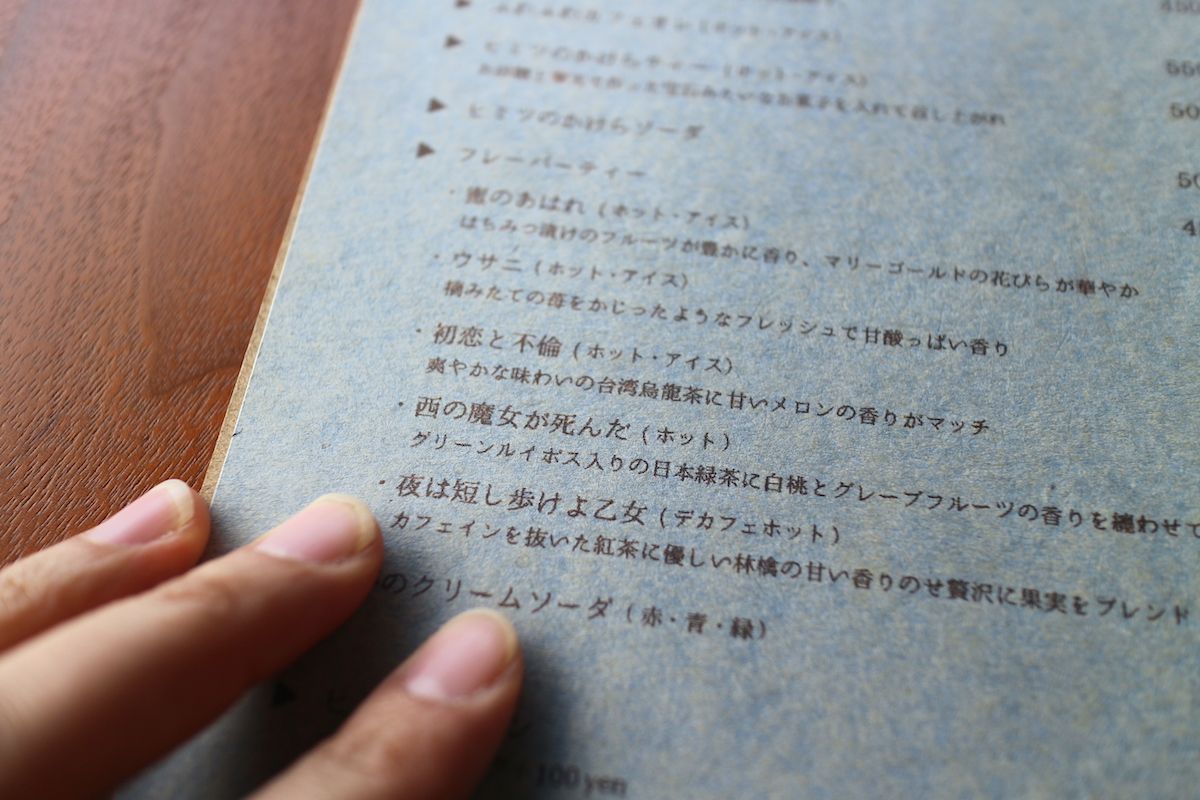 ヒミツのかけらティー(ホット・アイス)
ヒミツのかけらソーダ
フレーバーティー
・蜜のあはれ(ホット・アイス)
はちみつ漬けのフルーツが豊かに香り、マリーゴールドの花びらが華やか
・ウサニ(ホット・アイス)
摘みたての苺をかじったようなフレッシュで甘酸っぱい香り
・初恋と不倫(ホット・アイス)
爽やかな味わいの台湾烏龍茶に甘いメロンの香りがマッチ
・西の魔女が死んだ(ホット)
グリーンルイボス入りの日本緑茶に白桃とグレープフルーツの香りを纏わせて
・夜は短し歩けよ乙女(デカフェホット)
カフェインを抜いた紅茶に優しい林檎の甘い香りのせ贅沢に果実をブレンド
のクリームソーダ(赤・青・緑)
100yen